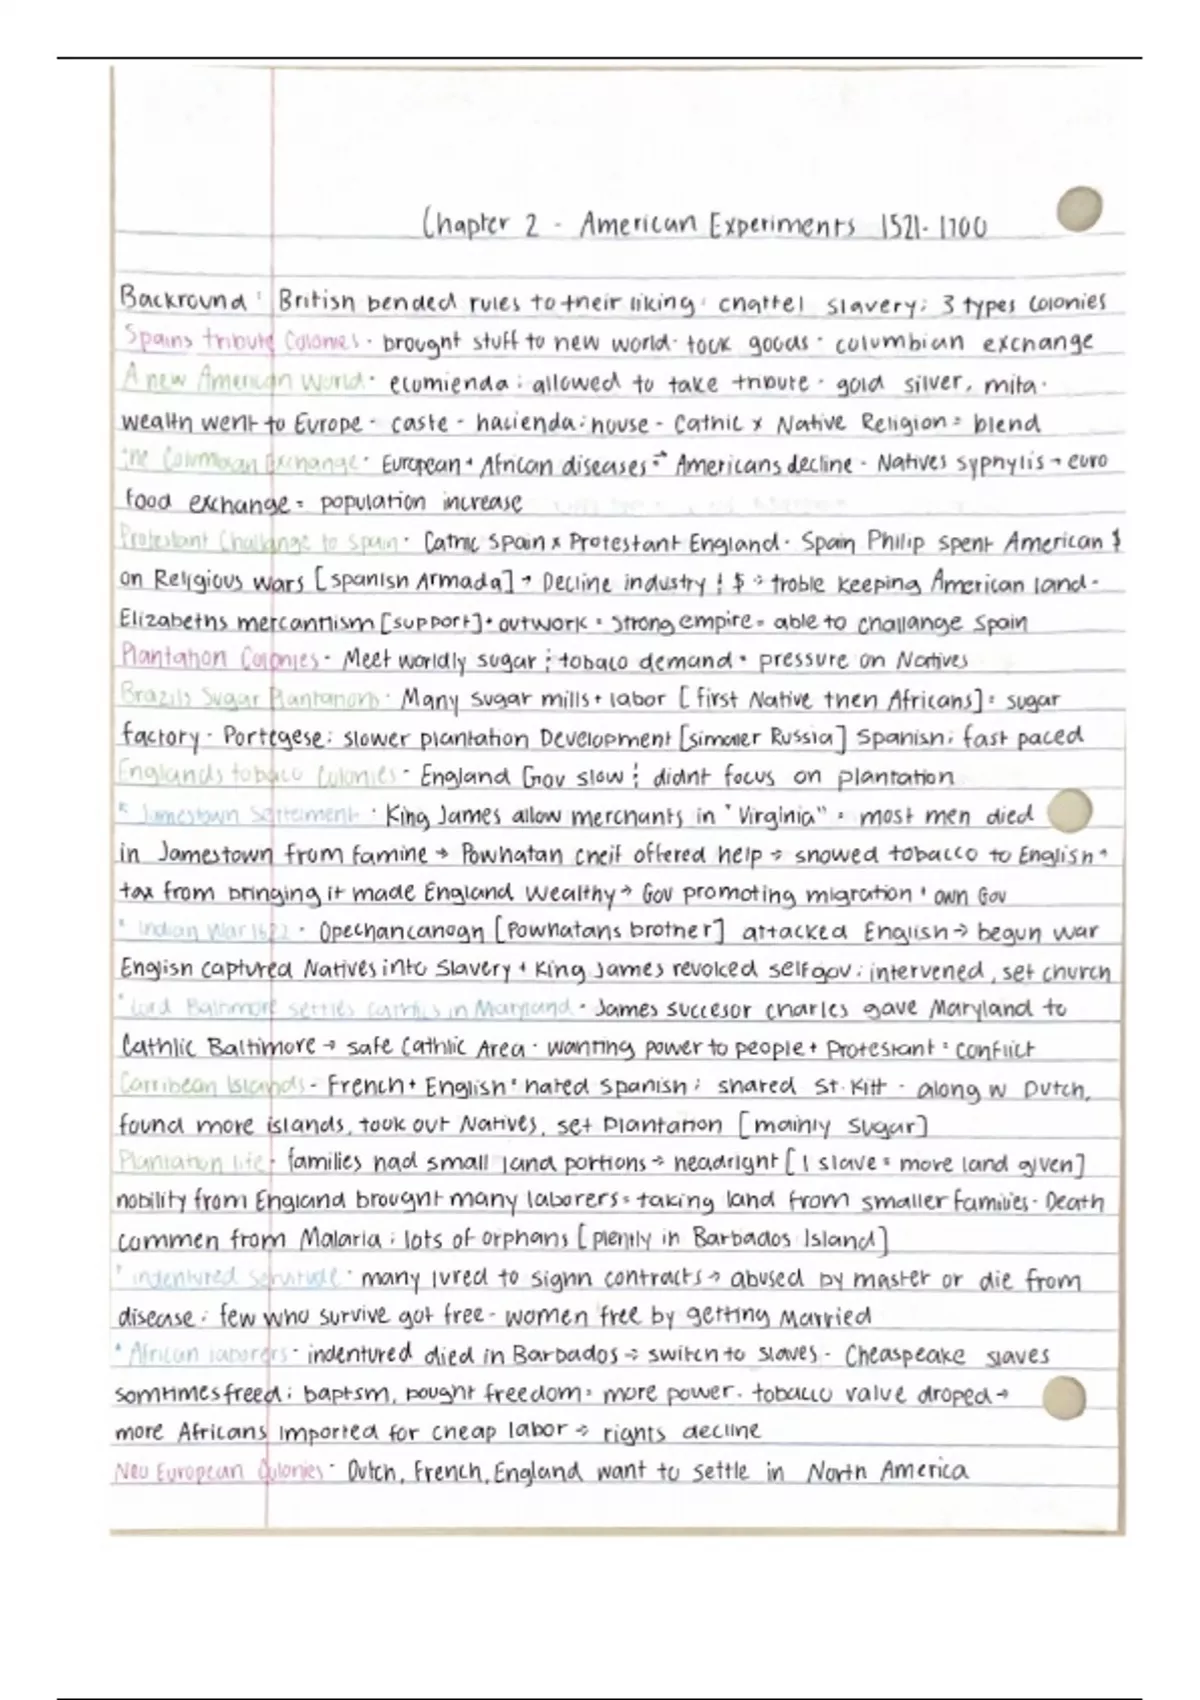 Chapter 2 - American Experiments 1521-1700
Backround: British bended rules to their liking · chattel slavery; 3 types colonies
Spains tribute Colonies · brought stuff to new world · took goods · columbian exchange
A new American World · ecomienda: allowed to take tribute · gold silver, mita ·
wealth went to Europe - caste - hacienda: house - Cathlic x Native Religion = blend
The Colombian Exchange · European + African diseases → Americans decline - Natives syphylis → euro
food exchange = population increase
Protestant Challange to Spain · Cathlic Spain x Protestant England · Spain Philip spent American $
on Religious wars [Spanish Armada] → Decline industry & $ → troble keeping American land -
Elizabeths mercantlism [support] + outwork = strong empire = able to challange Spain
Plantation Colonies - Meet worldly sugar & tobaco demand · pressure on Natives
Brazils Sugar Plantations · Many sugar mills + labor [first Native then Africans] = sugar
factory · Portegese: slower plantation Development [similer Russia] Spanish: fast paced
Englands tobaco Colonies - England Gov slow & didnt focus on plantation
* Jamestown Settlement · King James allow merchants in "Virginia" = most men died
in Jamestown from famine → Powhatan cheif offered help → showed tobacco to English ·
tax from bringing it made England wealthy → Gov promoting migration + own Gov
* Indian War 1622 · Opechancanogh [Powhatans brother] attacked English → begun war
English captured Natives into Slavery + King James revolked selfgov: intervened, set church
* Lord Baltimore settles Cathlics in Maryland · James succesor Charles gave Maryland to
Cathlic Baltimore → safe Cathlic Area · wanting power to people + Protestant = conflict
Carribean Islands - French + English: hated Spanish; shared St. Kitt - along w Dutch,
found more islands, took out Natives, set plantation [mainly sugar]
Plantation life · families had small land portions → headright [1 slave = more land given]
nobility from England brought many laborers = taking land from smaller families · Death
commen from Malaria: lots of orphans [plently in Barbados Island]
* indentured servitude · many lured to signn contracts → abused by master or die from
disease: few who survive got free - women free by getting married
* African laborers · indentured died in Barbados → switch to slaves - Cheaspeake slaves
somtimes freed: baptsm, bought freedom = more power. tobacco value droped →
more Africans imported for cheap labor → rights decline
New European Colonies · Dutch, French, England want to settle in North America